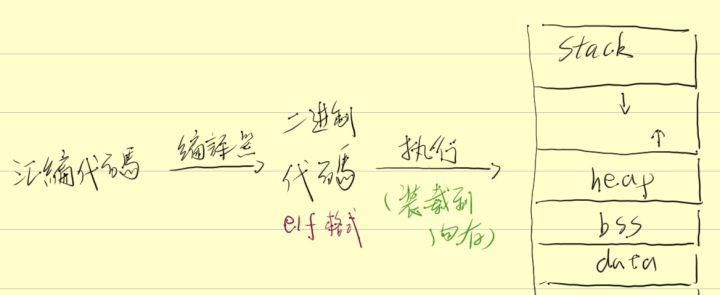 汇编代码
编译器
二进制
代码
elf 格式
执行
(装载到
内存)
stack
heap
bss
data